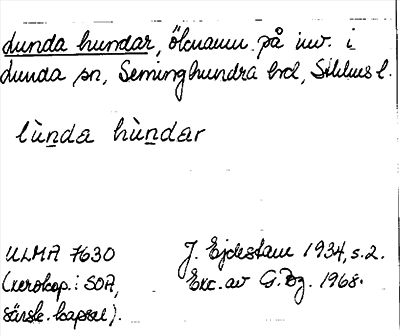 Lunda hundar, öknamn på inv. i
Lunda sn, Seminghundra hd, Sthlms l.
lùnda hùndar
ULMA 7630
(xerokop. i SOA,
särsk. kapsel).
J. Ejdestam 1934, s. 2.
Exc. av G. Bg. 1968.